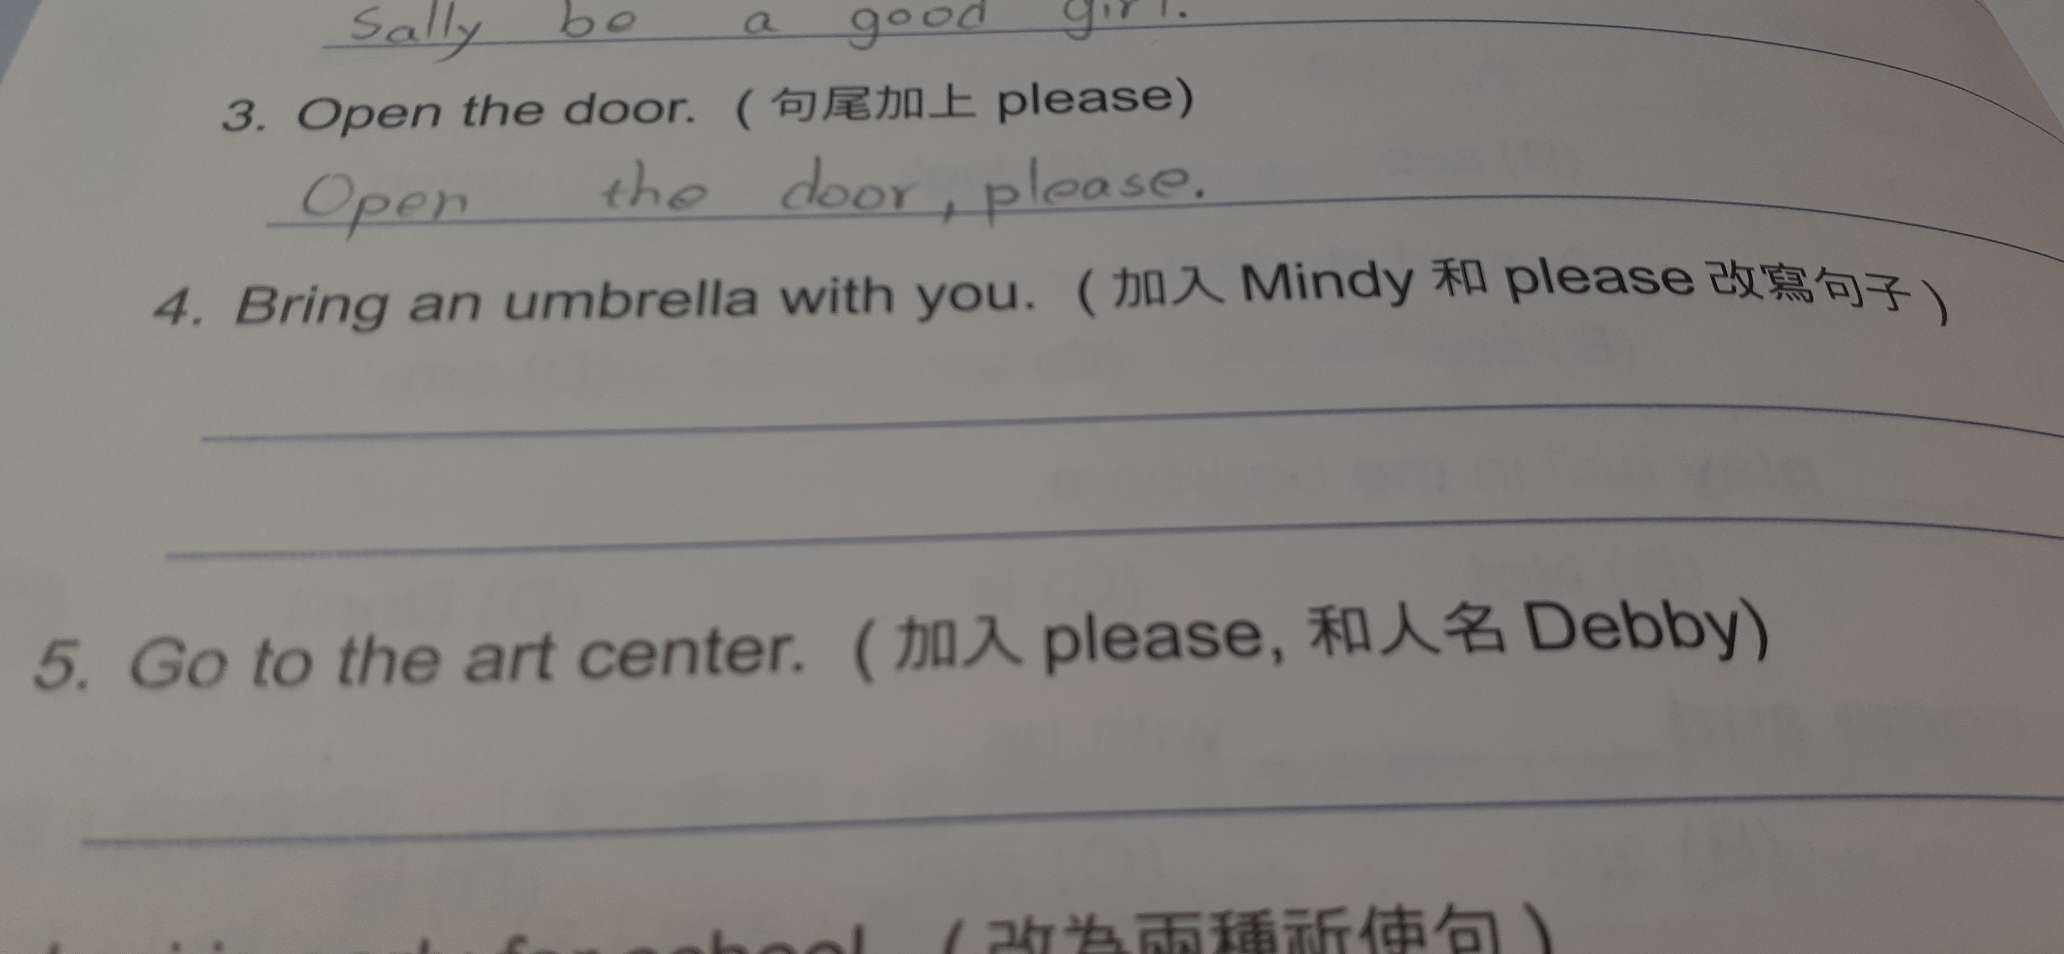 Sally be a good girl.
3. Open the door. (句尾加上 please)
Open the door, please.
4. Bring an umbrella with you. (加入 Mindy 和 please 改寫句子)
5. Go to the art center. (加入 please, 和人名 Debby)
school. (改為兩種祈使句)